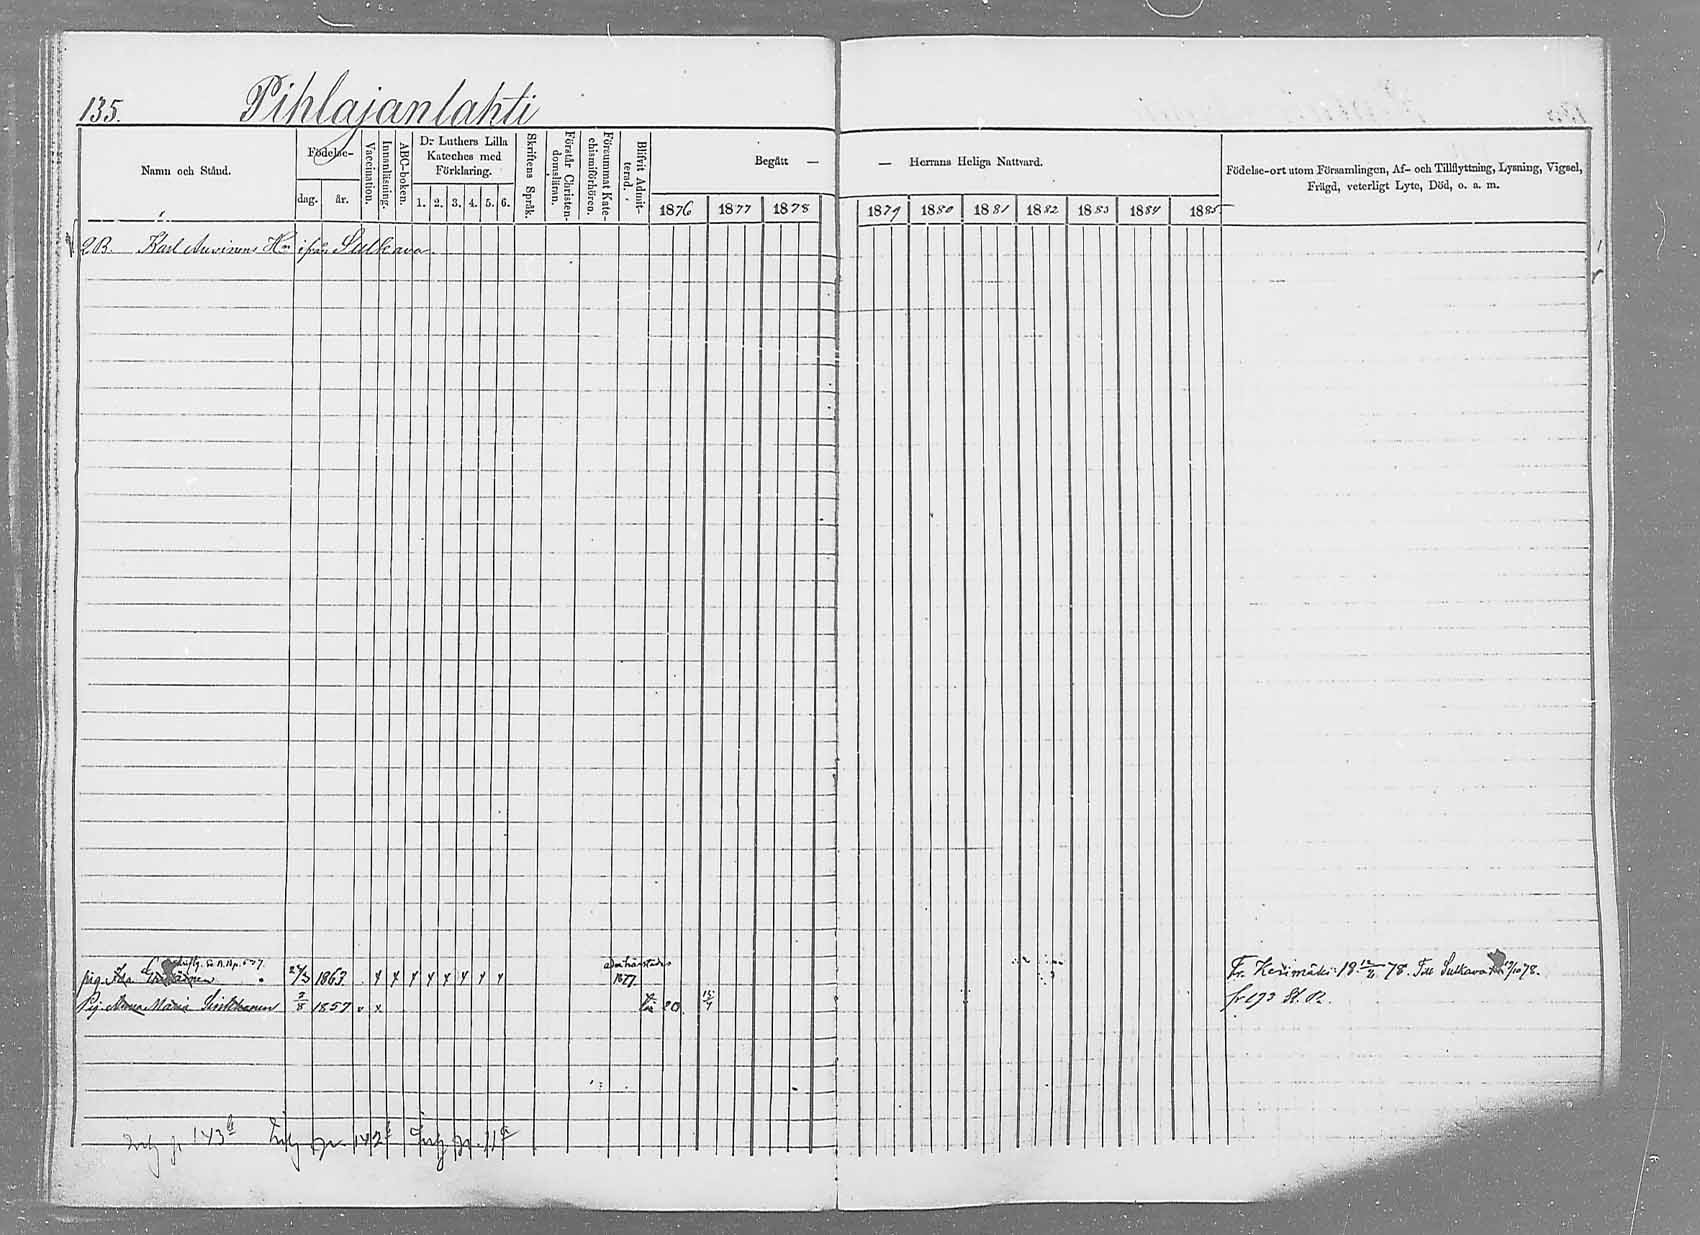 135. Pihlajanlahti
Namn och Stånd.
Födelse-
dag. år.
Vaccination.
Innanläsning.
ABC-boken.
Dr Luthers Lilla Kateches med Förklaring.
1. 2. 3. 4. 5. 6.
Skriftens Språk.
Förstår Christendomsläran.
Försummat Katechismiförhören.
Blifvit Admitterad.
Begått —
— Herrans Heliga Nattvard.
1876 1877 1878 1879 1880 1881 1882 1883 1884 1885
Födelse-ort utom Församlingen, Af- och Tillflyttning, Lysning, Vigsel,
Frägd, veterligt Lyte, Död, o. a. m.
2 B. Karl Auvinens Hn ifrån Sulkava.
pig. Ada 24/3 1863 1877. Fr. Kerimäki 18 78. Till Sulkava 78.
Pig. Anna Maria 2/8 1857 v x 20 15/7 fr 193 St. R.
143 142 11a